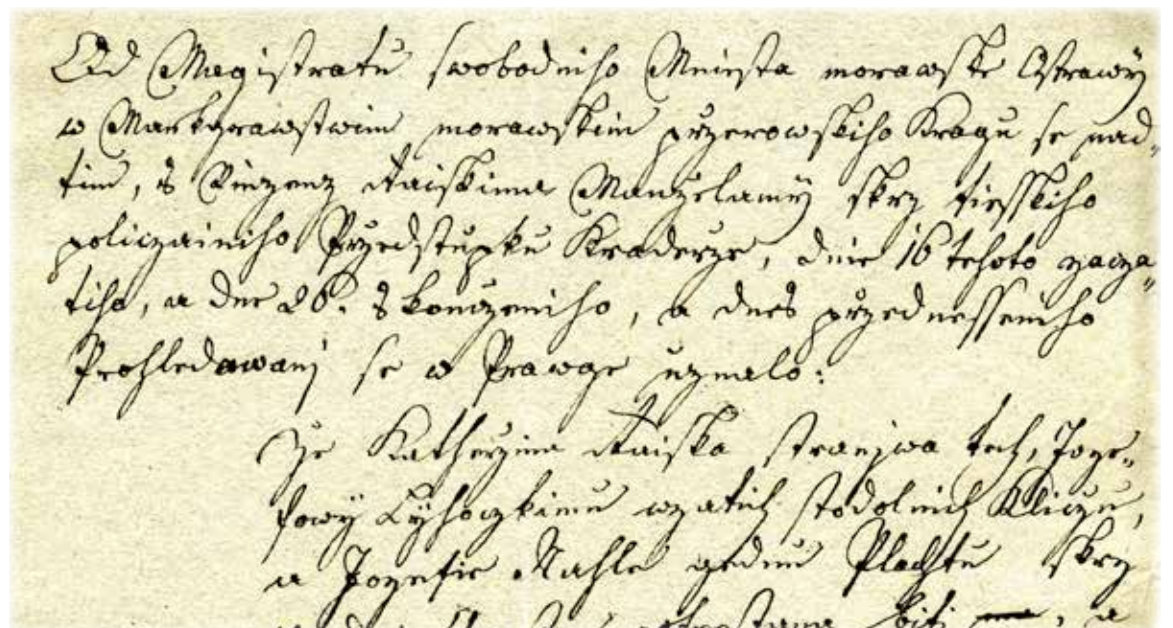 Od Magistratu swobodniho Mniesta morawske Ostrawÿ
w Markgrawstwim morawskim przerowskiho Kragu se nad-
tim, Vinzenz Raiskima Manzelamÿ skrz tiesskiho
policzainiho Przedstupku Kraderze, dnie 16 tehoto zacza-
tiho, a dne 26. skonczeniho, a dnes przednesseniho
Prohledawanj se w Prawge uznalo:
Ze Katherzina Raiska stranjwa tech, Joze-
fowÿ Lÿhoczkimu wzatich stodolnich Kliczu,
a Jozefie Mahle gednu Plachtu skrz
biti, a